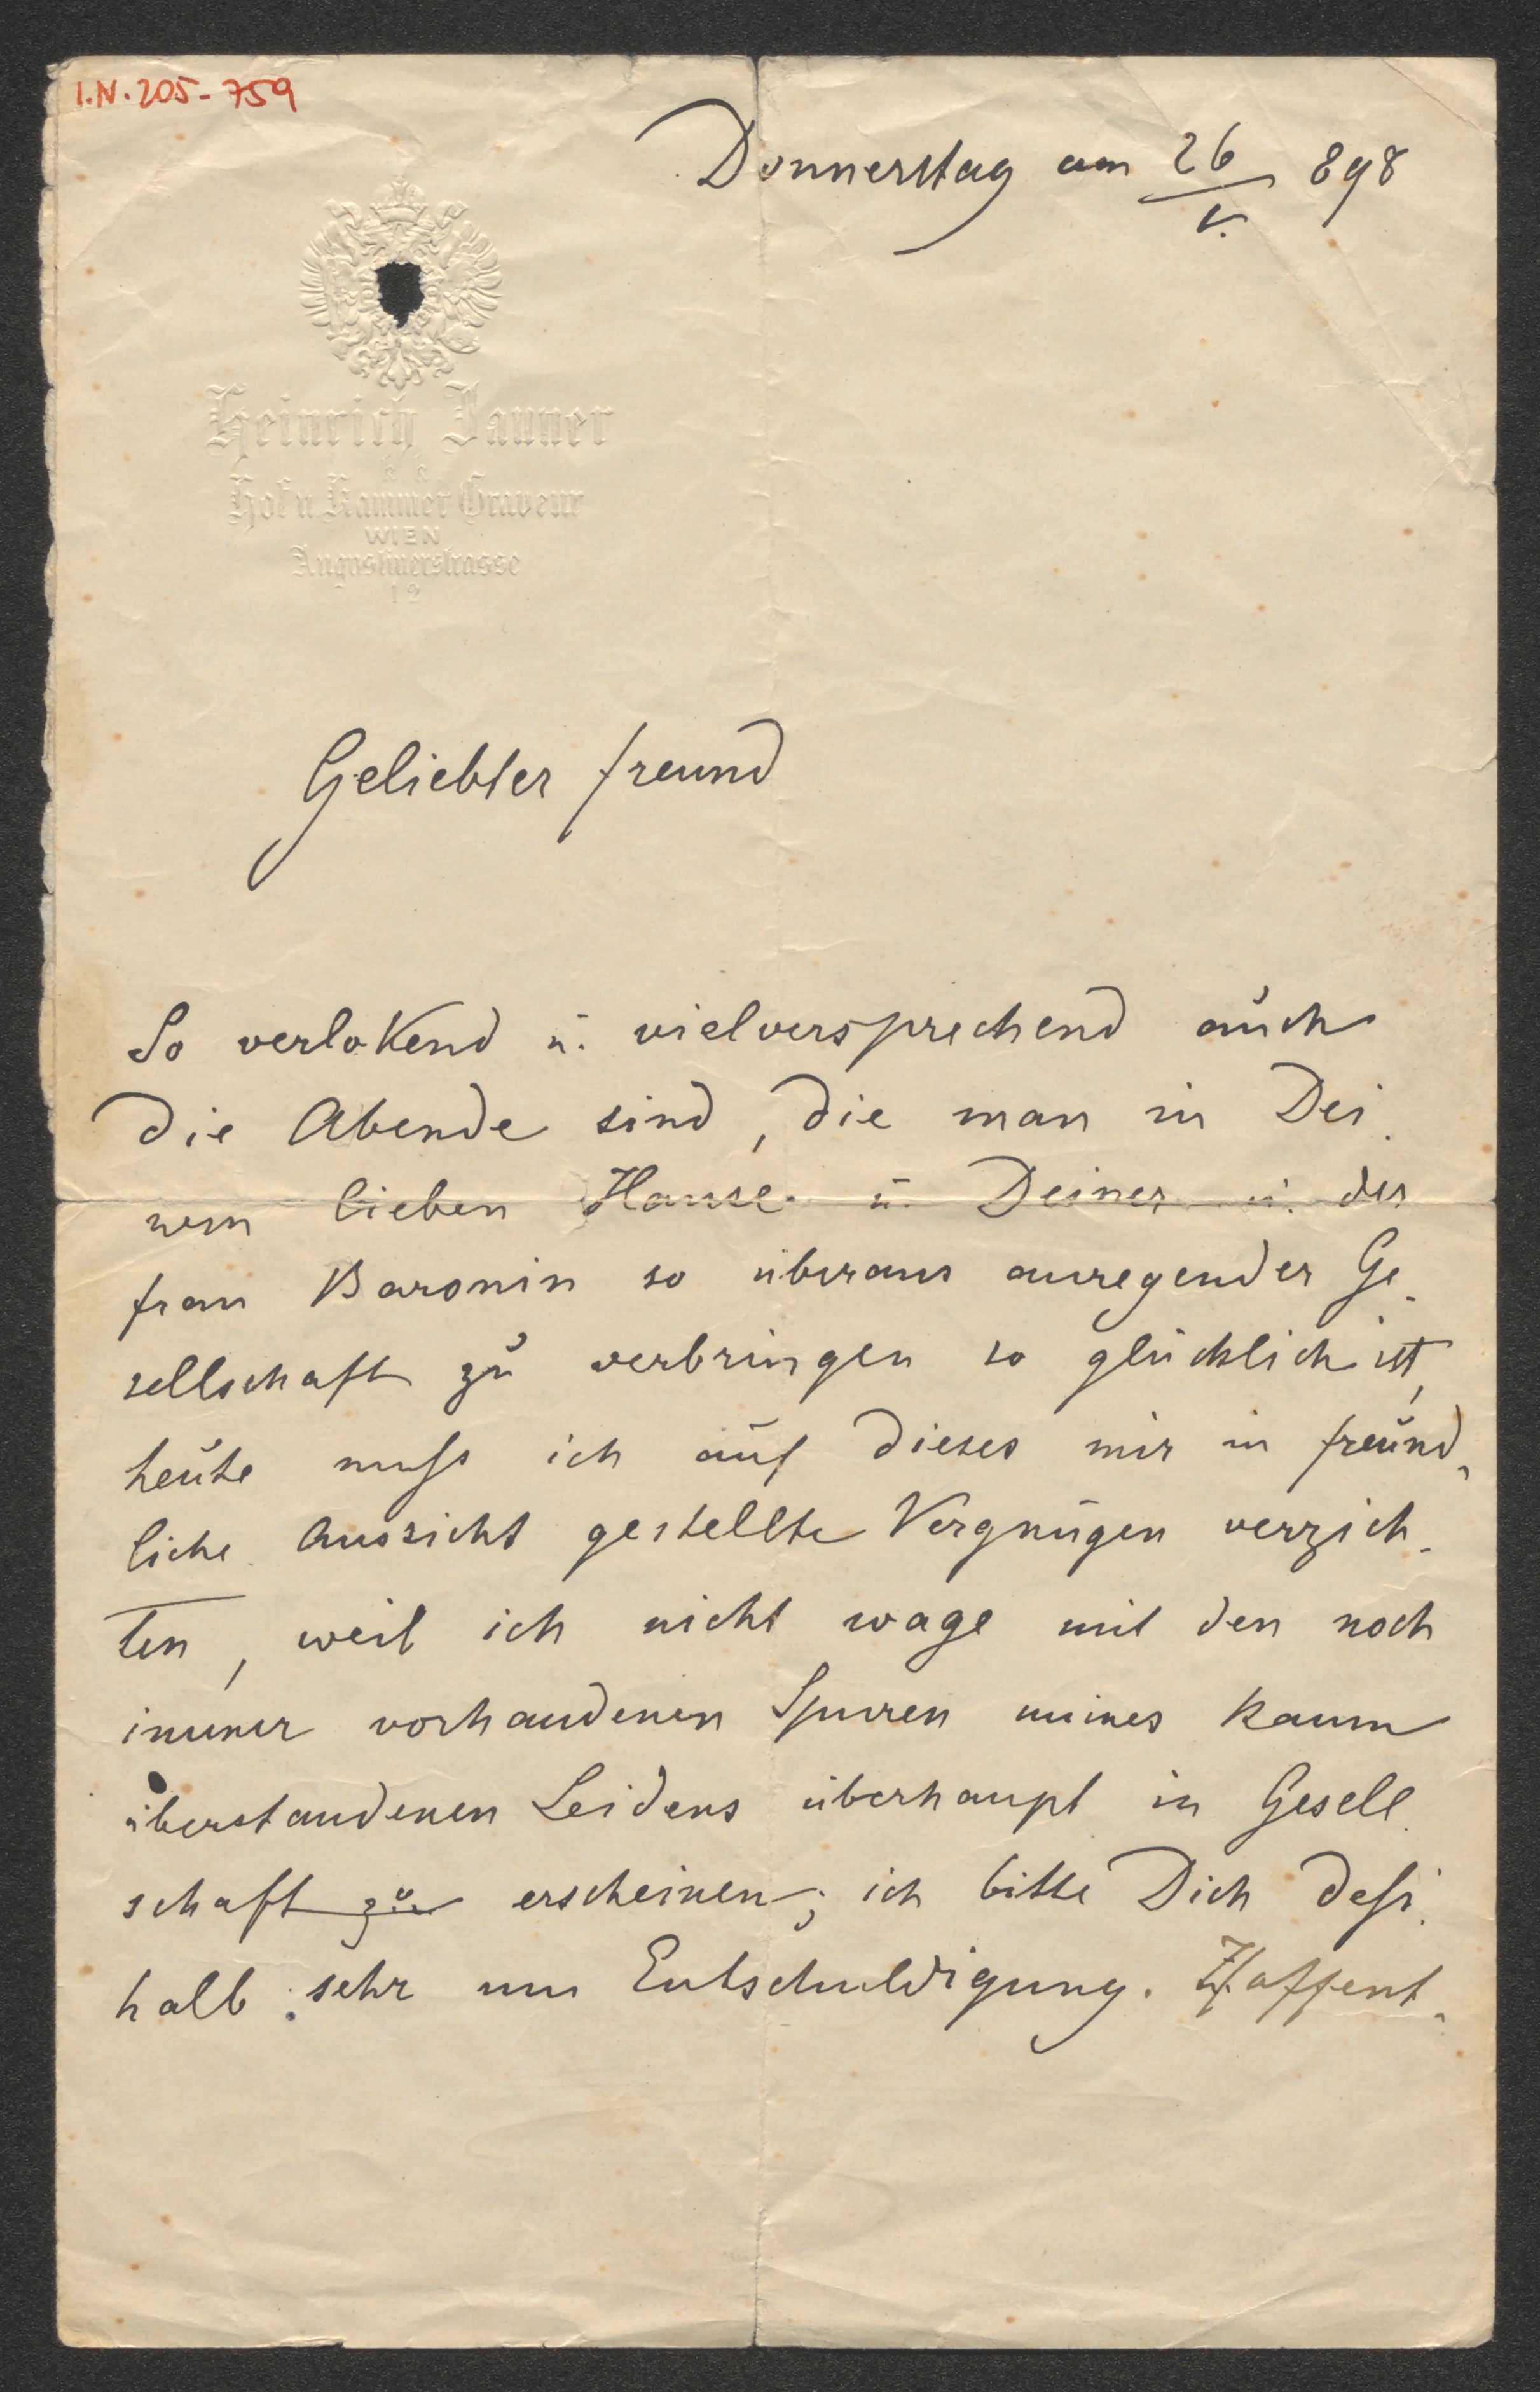 I.N. 205-759
Donnerstag am 26/V. 898
Heinrich Jauner
k. k.
Hof u. Kammer Graveur
WIEN
Augustinerstrasse
12
Geliebter Freund
So verlokend u. vielversprechend auch
die Abende sind, die man in Dei-
nem lieben Hause u. Deiner u. der
Frau Baronin so überaus anregender Ge-
sellschaft zu verbringen so glücklich ist,
heute muß ich auf dieses mir in freund-
liche Aussicht gestellte Vergnügen verzich-
ten, weil ich nicht wage mit den noch
immer vorhandenen Spuren meines kaum
überstandenen Leidens überhaupt in Gesell-
schaft zu erscheinen; ich bitte Dich deß-
halb sehr um Entschuldigung. Hoffent-